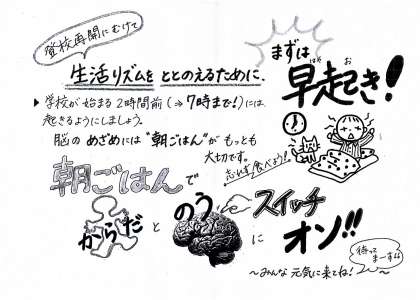 登校再開にむけて
生活リズムを ととのえるために、
まずは
早起き!
はや お
▶ 学校が始まる2時間前(⇒7時まで!)には、
起きるようにしましょう。
脳の めざめには "朝ごはん"が もっとも
大切です。
忘れず食べよう!!
朝ごはんで
からだ と のう に スイッチ
オン!!
待ってまーす
〜みんな 元気に来てね!